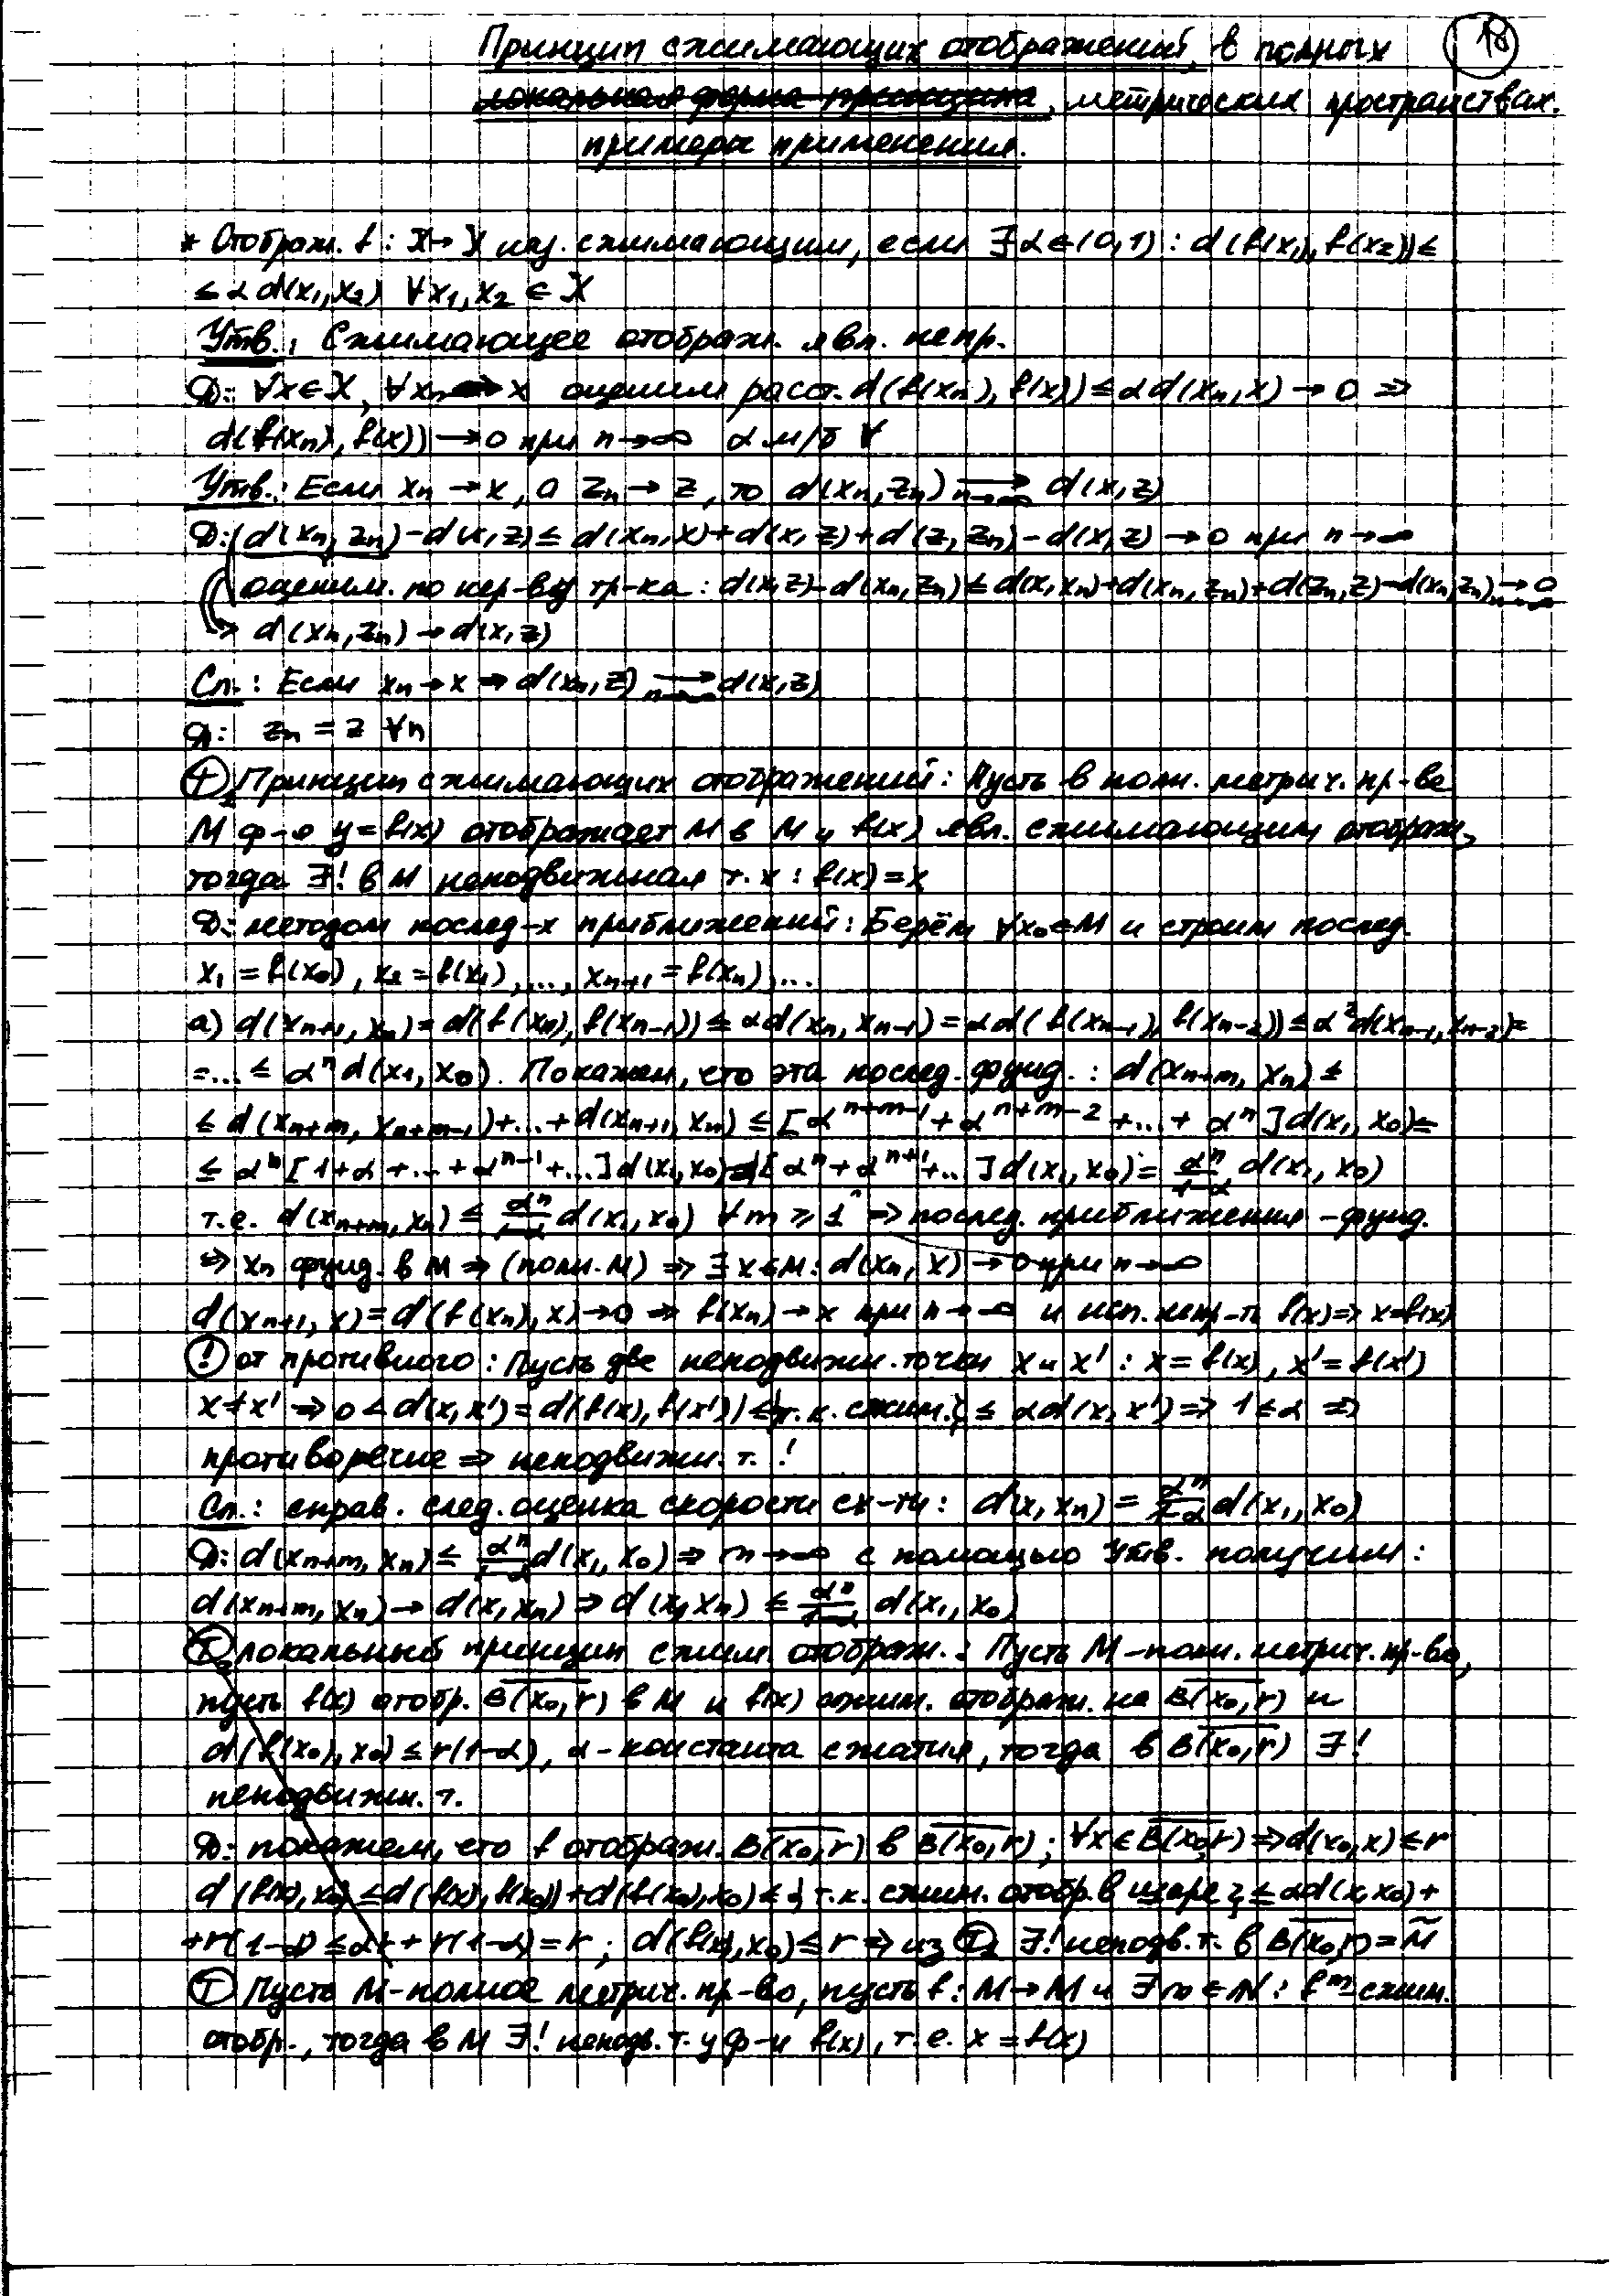 Принцип сжимающих отображений, в полных 18
локальная форма принципа, метрических пространствах.
примеры применения.
* Отображ. f: X→X наз. сжимающим, если ∃ α∈(0,1): d(f(x₁), f(x₂)) ≤
≤ α d(x₁, x₂) ∀x₁, x₂ ∈ X
Утв.: Сжимающее отображ. явл. непр.
Д: ∀x∈X, ∀xₙ→x оценим расст. d(f(xₙ), f(x)) ≤ α d(xₙ, x) → 0 ⇒
d(f(xₙ), f(x)) → 0 при n→∞ α м/б ∀
Утв.: Если xₙ → x, а zₙ → z, то d(xₙ, zₙ) →ₙ→∞ d(x, z)
Д: (d(xₙ, zₙ) – d(x, z) ≤ d(xₙ, x) + d(x, z) + d(z, zₙ) – d(x, z) → 0 при n→∞
оценим. по нер-ву тр-ка: d(x, z) – d(xₙ, zₙ) ≤ d(x, xₙ) + d(xₙ, zₙ) + d(zₙ, z) – d(xₙ, zₙ) →ₙ→∞ 0
⇒ d(xₙ, zₙ) → d(x, z)
Сл.: Если xₙ → x ⇒ d(xₙ, z) →ₙ→∞ d(x, z)
Д: zₙ = z ∀n
Ⓣ₁ Принцип сжимающих отображений: Пусть в полн. метрич. пр-ве
M ф-я y = f(x) отображает M в M и f(x) явл. сжимающим отображ,
тогда ∃! в M неподвижная т. x: f(x) = x
Д: методом послед-х приближений: Берём ∀x₀∈M и строим послед.
x₁ = f(x₀), x₂ = f(x₁), ..., xₙ₊₁ = f(xₙ), ...
а) d(xₙ₊₁, xₙ) = d(f(xₙ), f(xₙ₋₁)) ≤ α d(xₙ, xₙ₋₁) = α d(f(xₙ₋₁), f(xₙ₋₂)) ≤ α² d(xₙ₋₁, xₙ₋₂) =
= ... ≤ αⁿ d(x₁, x₀). Покажем, что эта послед. фунд.: d(xₙ₊ₘ, xₙ) ≤
≤ d(xₙ₊ₘ, xₙ₊ₘ₋₁) + ... + d(xₙ₊₁, xₙ) ≤ [αⁿ⁺ᵐ⁻¹ + αⁿ⁺ᵐ⁻² + ... + αⁿ] d(x₁, x₀) ≤
≤ αⁿ [1 + α + ... + αⁿ⁻¹ + ...] d(x₁, x₀) = [αⁿ + αⁿ⁺¹ + ...] d(x₁, x₀) = αⁿ/(1–α) d(x₁, x₀)
т.е. d(xₙ₊ₘ, xₙ) ≤ αⁿ/(1–α) d(x₁, x₀) ∀m ≥ 1 ⇒ послед. приближения – фунд.
⇒ xₙ фунд. в M ⇒ (полн. M) ⇒ ∃ x∈M: d(xₙ, x) → 0 при n→∞
d(xₙ₊₁, x) = d(f(xₙ), x) → 0 ⇒ f(xₙ) → x при n→∞ и исп. непр-ть f(x) ⇒ x = f(x)
(!) от противного: Пусть две неподвижн. точки x и x': x = f(x), x' = f(x')
x ≠ x' ⇒ 0 < d(x, x') = d(f(x), f(x')) ≤ {т.к. сжим.} ≤ α d(x, x') ⇒ 1 ≤ α ⇒
противоречие ⇒ неподвижн. т. !
Сл.: справ. след. оценка скорости сх-ти: d(x, xₙ) = αⁿ/(1–α) d(x₁, x₀)
Д: d(xₙ₊ₘ, xₙ) ≤ αⁿ/(1–α) d(x₁, x₀) ⇒ m→∞ с помощью Утв. получим:
d(xₙ₊ₘ, xₙ) → d(x, xₙ) ⇒ d(x, xₙ) ≤ αⁿ/(1–α) d(x₁, x₀)
Ⓣ₂ локальный принцип сжим. отображ.: Пусть M – полн. метрич. пр-во,
пусть f(x) отобр. B̅(x₀, r) в M и f(x) сжим. отображ. на B̅(x₀, r) и
d(f(x₀), x₀) ≤ r(1–α), α – константа сжатия, тогда в B̅(x₀, r) ∃!
неподвижн. т.
Д: покажем, что f отображ. B̅(x₀, r) в B̅(x₀, r); ∀x∈B̅(x₀, r) ⇒ d(x₀, x) ≤ r
d(f(x), x₀) ≤ d(f(x), f(x₀)) + d(f(x₀), x₀) ≤ {т.к. сжим. отобр. в шаре} ≤ α d(x, x₀) +
+ r(1–α) ≤ αr + r(1–α) = r; d(f(x), x₀) ≤ r ⇒ из Ⓣ₁ ∃! неподв. т. в B̅(x₀, r) = M̃
Ⓣ Пусть M – полное метрич. пр-во, пусть f: M→M и ∃ m∈N: fᵐ сжим.
отобр., тогда в M ∃! неподв. т. у ф-и f(x), т.е. x = f(x)